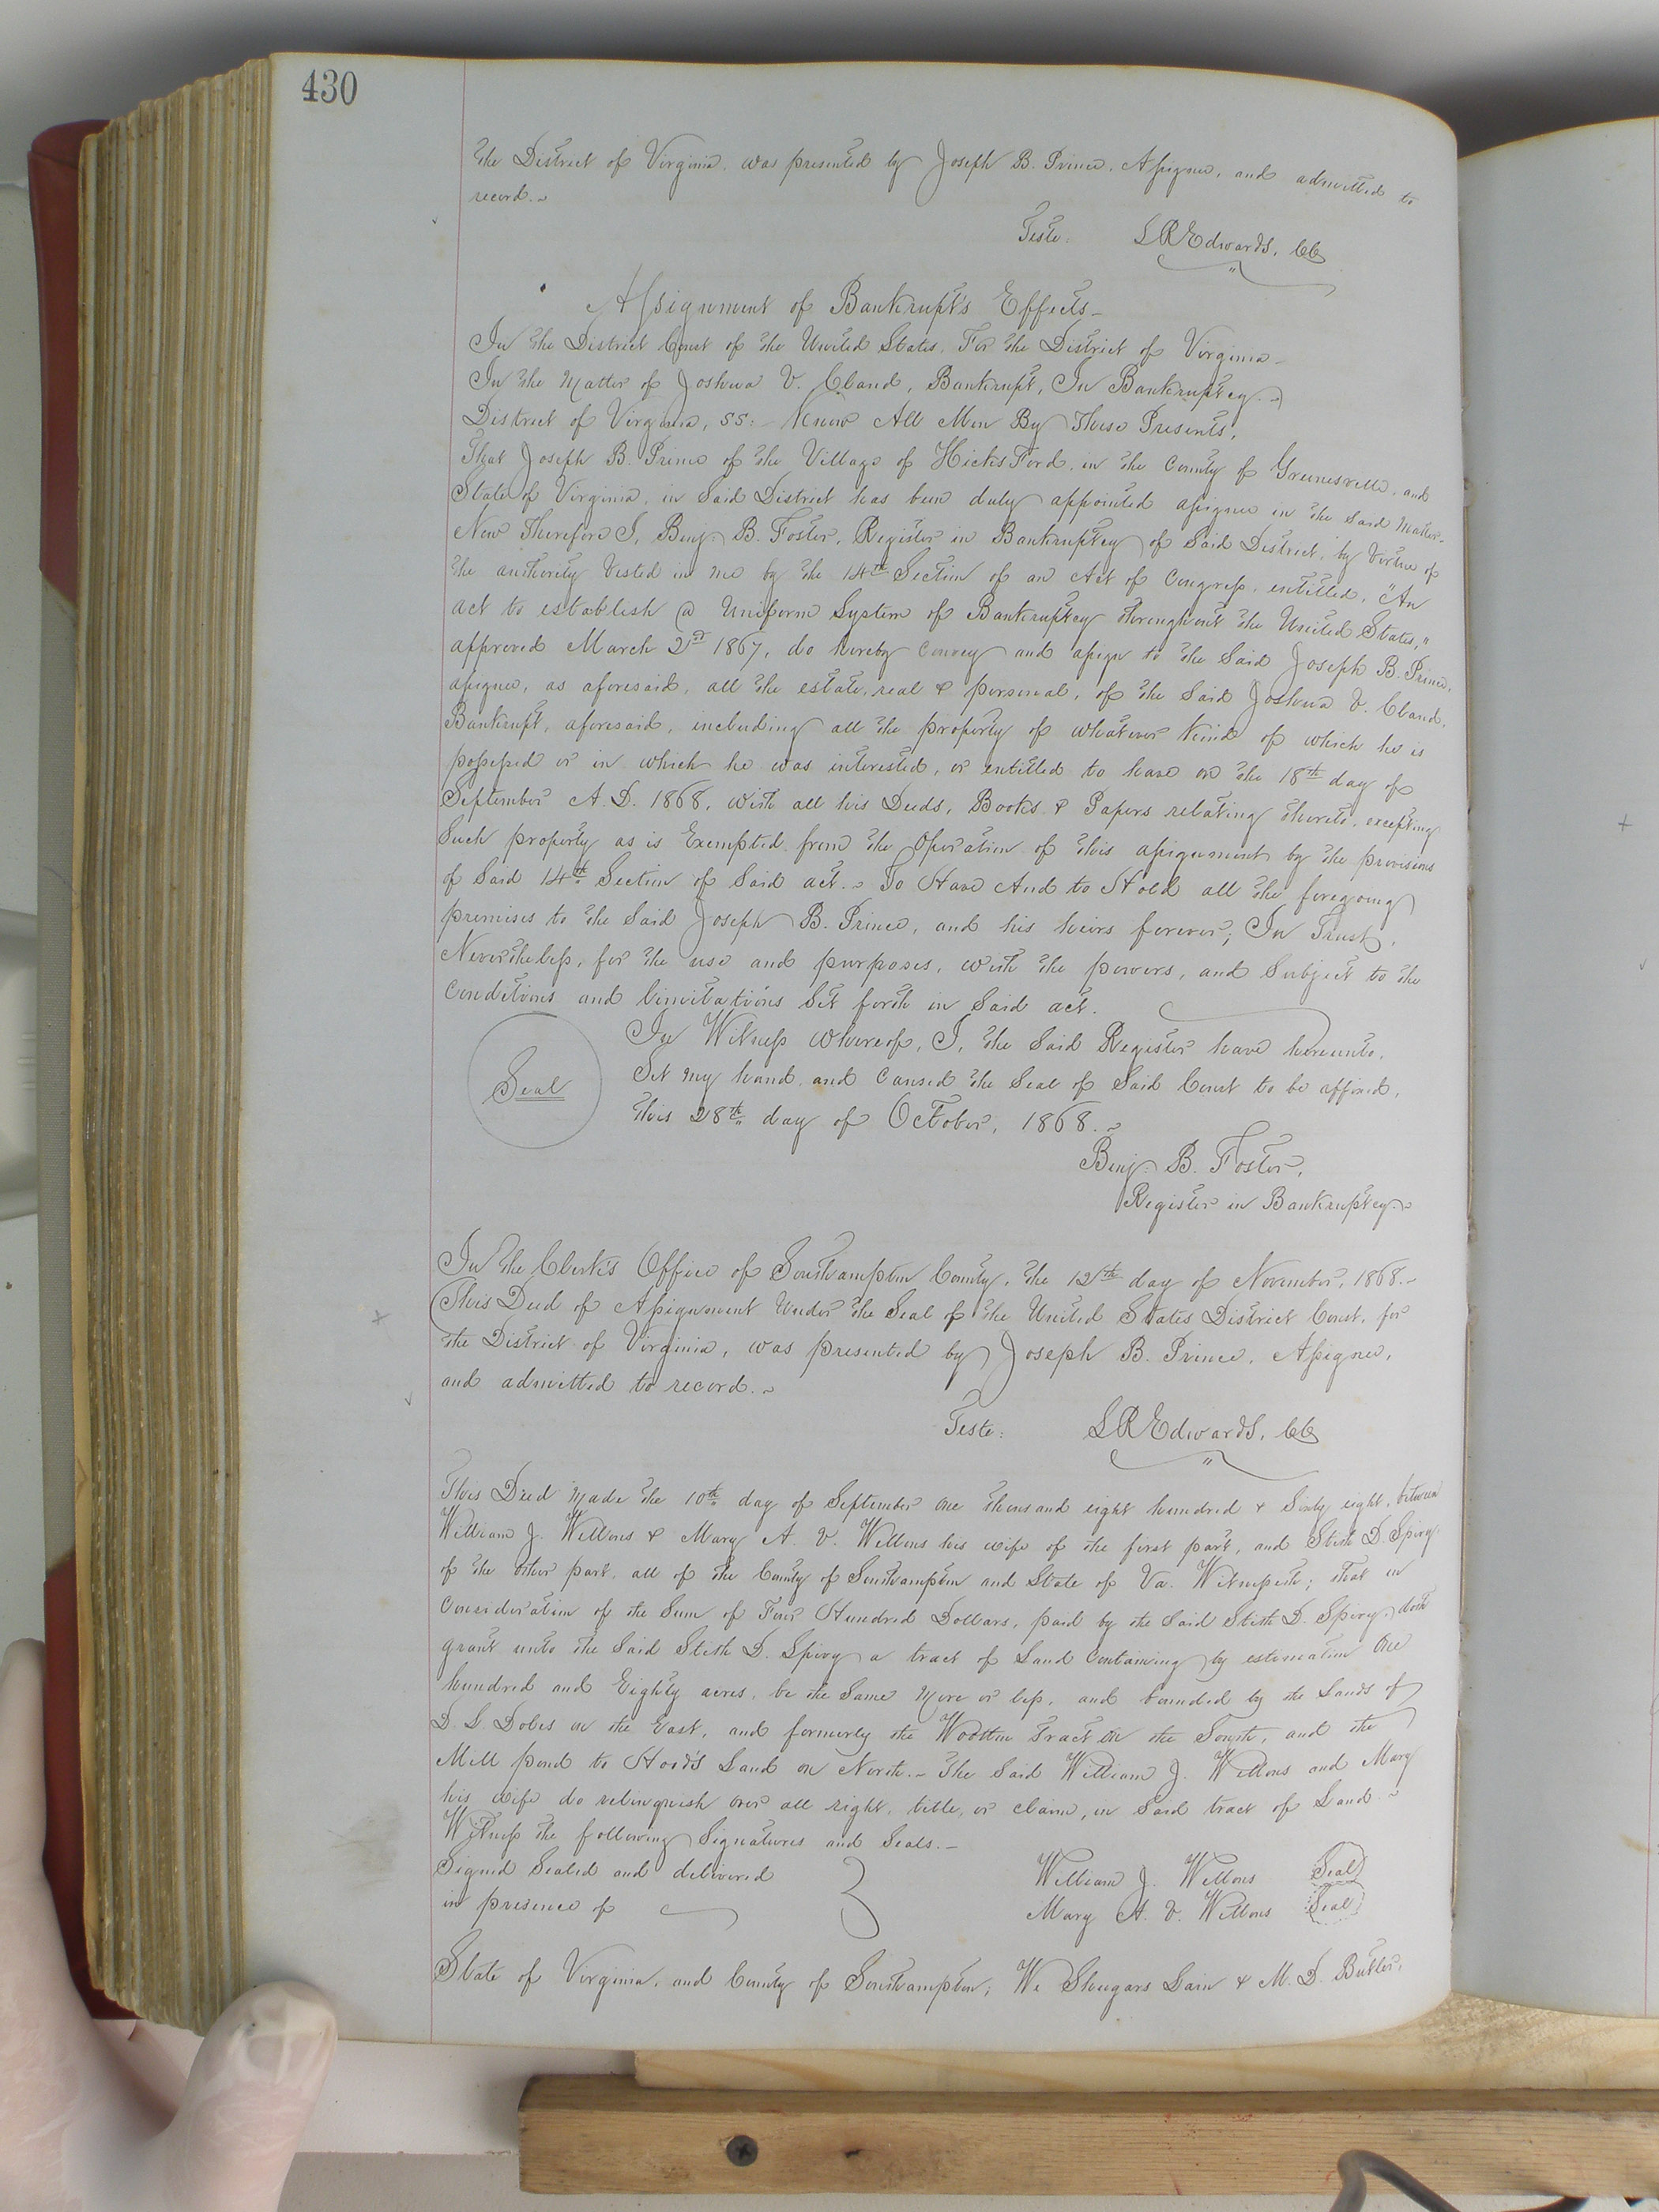 430
the District of Virginia, was presented by Joseph B. Prince, Assignee, and admitted to
record.~
Teste: L R Edwards, CC
Assignment of Bankrupt's Effects –
In the District Court of the United States. For the District of Virginia –
In the Matter of Joshua V. Claud, Bankrupt, In Bankruptcy.~
District of Virginia, SS: – Know All Men By These Presents,
That Joseph B. Prince of the Village of Hicks Ford, in the County of Greenesville, and
State of Virginia, in Said District has been duly appointed assignee in the Said Matter.
Now Therefore I, Benj. B. Foster, Register in Bankruptcy of Said District, by Virtue of
the authority Vested in me by the 14th Section of an Act of Congress, entitled, "An
act to establish a Uniform System of Bankruptcy throughout the United States,"
approved March 2nd 1867, do hereby Convey and assign to the Said Joseph B. Prince,
assignee, as aforesaid, all the estate, real & personal, of the Said Joshua V. Claud,
Bankrupt, aforesaid, including all the property of whatever Kind of which he is
possessed or in which he was interested, or entitled to have on the 18th day of
September A. D. 1868, with all his Deeds, Books & Papers relating thereto, excepting
Such property as is Exempted from the Operation of this assignment by the provisions
of Said 14th Section of Said act.~ To Have And to Hold all the foregoing
premises to the Said Joseph B. Prince, and his heirs forever; In Trust,
Nevertheless, for the use and purposes, with the powers, and Subject to the
Conditions and limitations Set forth in Said act.
Seal
In Witness Whereof, I, the Said Register have hereunto,
Set my hand, and Caused the Seal of Said Court to be affixed,
this 28th day of October, 1868.~
Benj. B. Foster,
Register in Bankruptcy.~
In the Clerk's Office of Southampton County, the 12th day of November, 1868.~
This Deed of Assignment Under the Seal of the United States District Court, for
the District of Virginia, was presented by Joseph B. Prince, Assignee,
and admitted to record.~
Teste: L R Edwards, CC
This Deed Made the 10th day of September One thousand eight hundred & Sixty eight, between
William J. Wellons & Mary A. V. Wellons his wife of the first part, and Stith D. Spivy
of the other part, all of the County of Southampton and State of Va. Witnesseth; that in
Consideration of the Sum of Four Hundred Dollars, paid by the Said Stith D. Spivy, doth
grant unto the Said Stith D. Spivy a tract of Land Containing by estimation One
hundred and Eighty acres, be the Same More or less, and bounded by the Lands of
D. L. Doles on the East, and formerly the Wootten Tract on the South, and the
Mill pond to Hood's Land on North.~ The Said William J. Wellons and Mary
his wife do relinquish over all right, title, or claim, in Said tract of Land.~
Witness the following Signatures and Seals.~
Signed Sealed and delivered William J. Wellons Seal
in presence of Mary A. V. Wellons Seal
State of Virginia, and County of Southampton; We Shugars Lain & M. D. Butler,